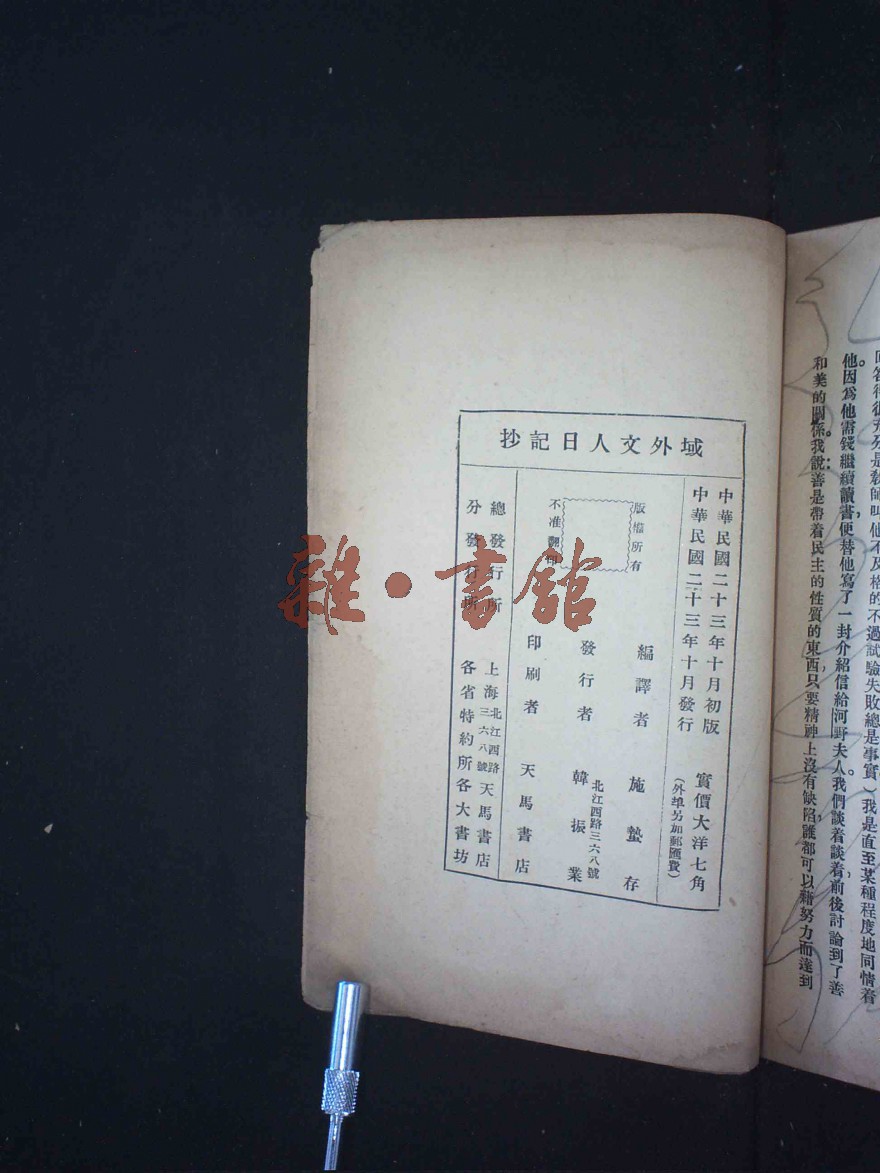 回答得很充分是教師叫他不及格的不過試驗失敗總是事實)我是直至某種程度地同情着
他。因爲他需錢繼續讀書便替他寫了一封介紹信給河野夫人。我們談着談着,前後討論到了善
和美的關係。我說:善是帶着民主的性質的東西,只要精神上沒有缺陷,誰都可以藉努力而達到
域外文人日記抄
中華民國二十三年十月初版
中華民國二十三年十月發行
實價大洋七角
(外埠另加郵匯費)
版權所有
不准翻印
編譯者 施蟄存
發行者 北江西路三六八號 韓振業
印刷者 天馬書店
總發行所 上海北江西路三六八號 天馬書店
分發行所 各省特約所各大書坊
雜·書館